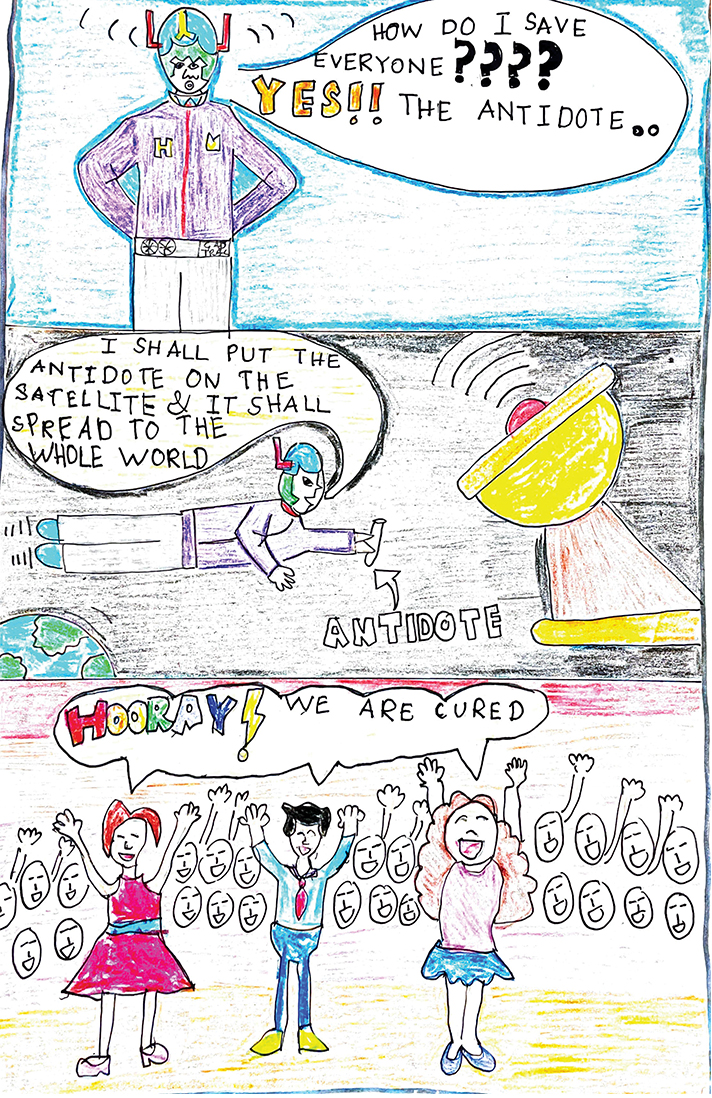 HOW DO I SAVE
EVERYONE ????
YES!! THE ANTIDOTE..
H M
I SHALL PUT THE
ANTIDOTE ON THE
SATELLITE & IT SHALL
SPREAD TO THE
WHOLE WORLD
ANTIDOTE
HOORAY! WE ARE CURED